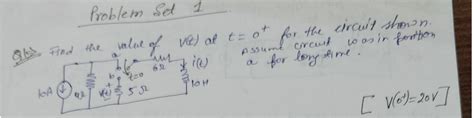 Problem Set 1
Find the value of V(t) at t = 0⁺ for the circuit shown.
Assume circuit was in position
a for long time.
a
b
t=0
6Ω
i(t)
10A
V(t)
5Ω
10H
[ V(0⁺)=20V ]